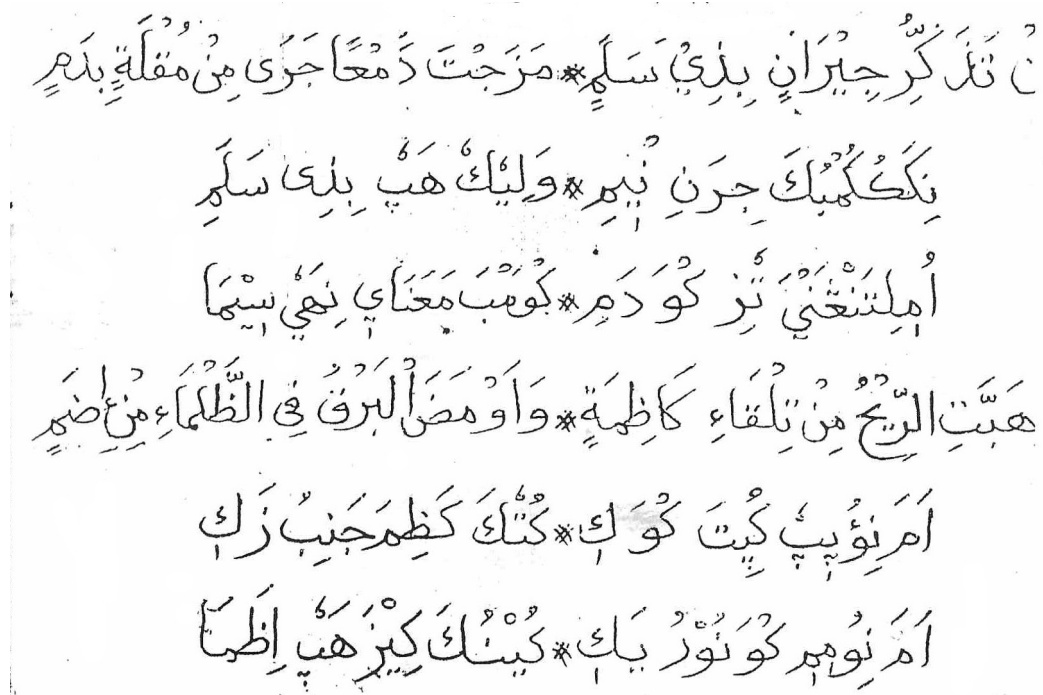 نْ تَذَكِّرِ جِيْرَانٍ بِذِيْ سَلَمٍ * مَزَجْتَ دَمْعًا جَرَى مِنْ مُقْلَةٍ بِدَمٍ
نِكَكُكُمْبُكَ جِرَنِ نْيٖمِ * وَلِيْكٗ هَپٗ بِذِى سَلَمِ
اُمِلِتَنْغَنْيَ تٗزِ كُوَ دَمِ * كُوَمْبَ مَعَنَايٖ نِهَيٗ سٖيْمَا
هَبَّتِ الرِّيْحُ مِنْ تِلْقَاءِ كَاظِمَةٍ * وَاَوْمَضَ الْبَرْقُ فِي الظَّلْمَاءِ مِنْ إِضَمٍ
اَمَ نِؤُپٖپٗ كُپِتَ كُوَكٖ * كُتٗكَ كَظِمَ جَنِبُ زَكٖ
اَمَ نِوُمٖمٖ كُوَ نُوْرُ يَكٖ * كِيْزَ هَپٗ اِظَمَا